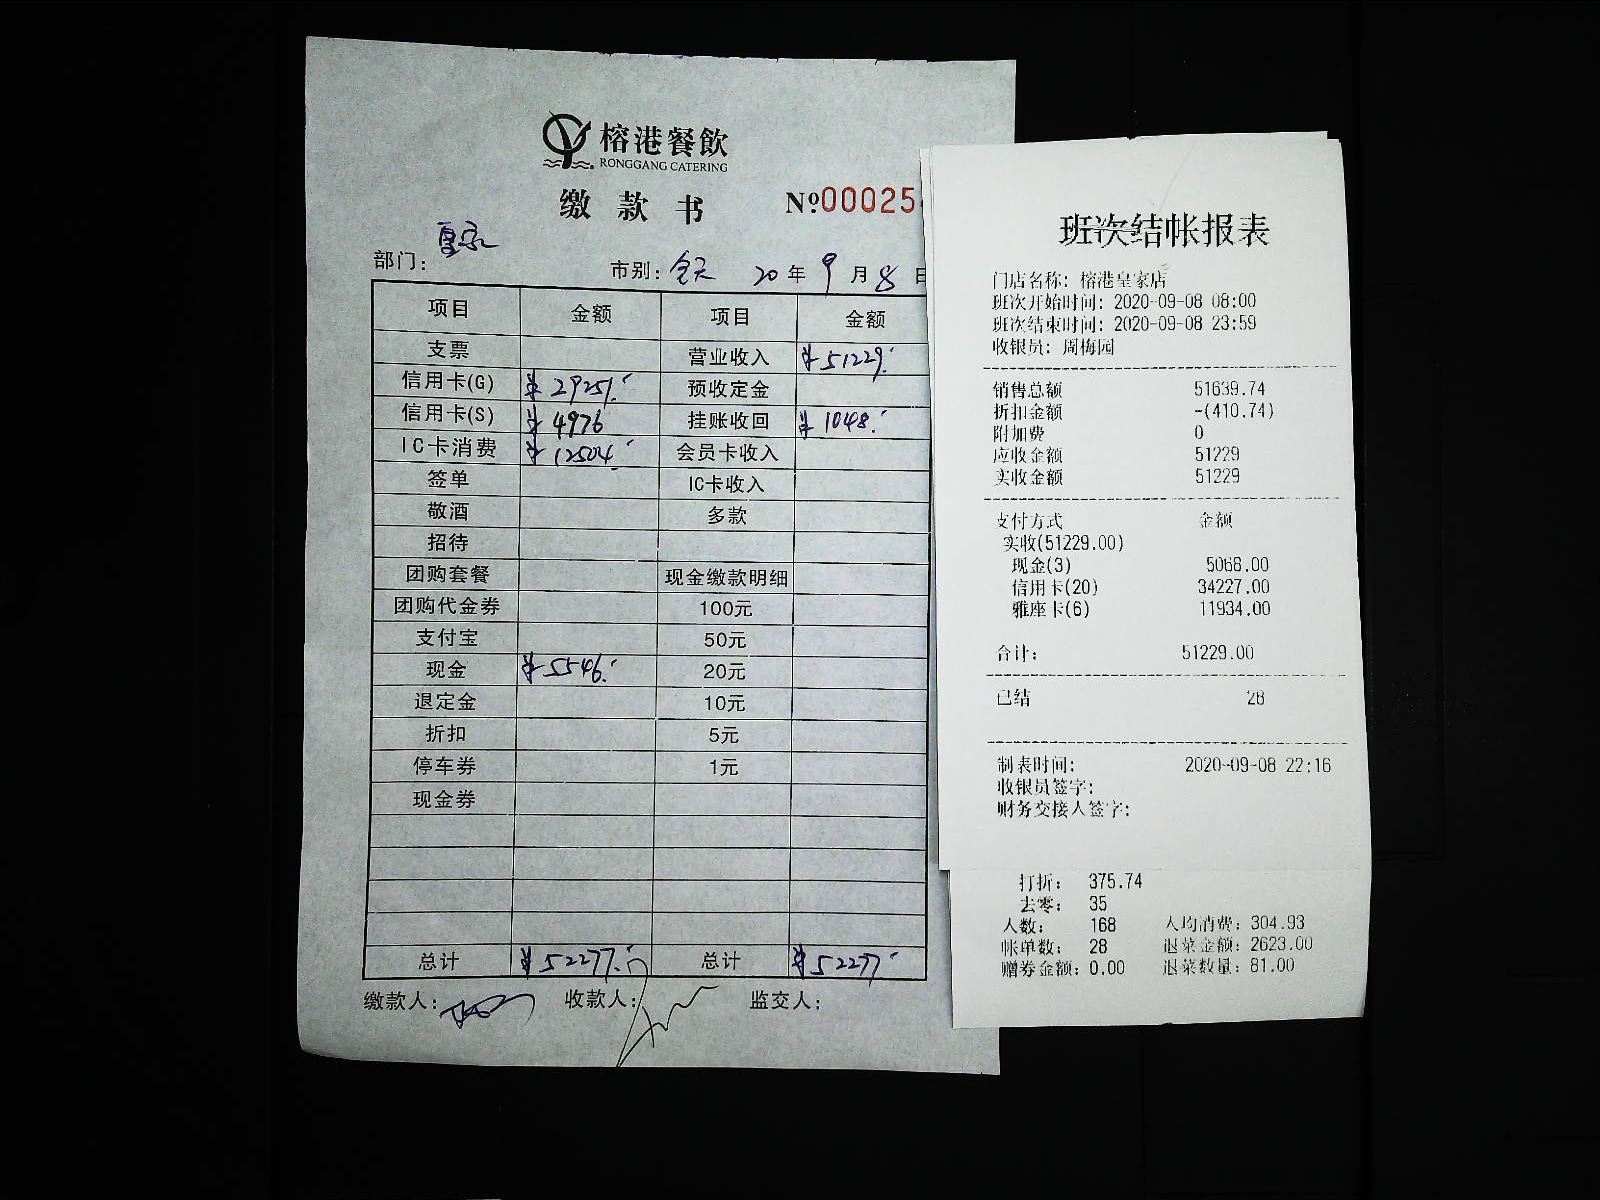 榕港餐飲
RONGGANG CATERING
缴款书 №00025
部门: 皇家 市别: 全天 20年9月8日
项目 金额 项目 金额
支票 营业收入 ¥51229.
信用卡(G) ¥29251. 预收定金
信用卡(S) ¥4976 挂账收回 ¥1048.
IC卡消费 ¥12504. 会员卡收入
签单 IC卡收入
敬酒 多款
招待
团购套餐 现金缴款明细
团购代金券 100元
支付宝 50元
现金 ¥5546. 20元
退定金 10元
折扣 5元
停车券 1元
现金券
总计 ¥52277. 总计 ¥52277
缴款人: 收款人: 监交人:
班次结帐报表
门店名称: 榕港皇家店
班次开始时间: 2020-09-08 08:00
班次结束时间: 2020-09-08 23:59
收银员: 周梅园
销售总额 51639.74
折扣金额 -(410.74)
附加费 0
应收金额 51229
实收金额 51229
支付方式 金额
实收(51229.00)
现金(3) 5068.00
信用卡(20) 34227.00
雅座卡(6) 11934.00
合计: 51229.00
已结 28
制表时间: 2020-09-08 22:16
收银员签字:
财务交接人签字:
打折: 375.74
去零: 35
人数: 168 人均消费: 304.93
帐单数: 28 退菜金额: 2623.00
赠券金额: 0.00 退菜数量: 81.00